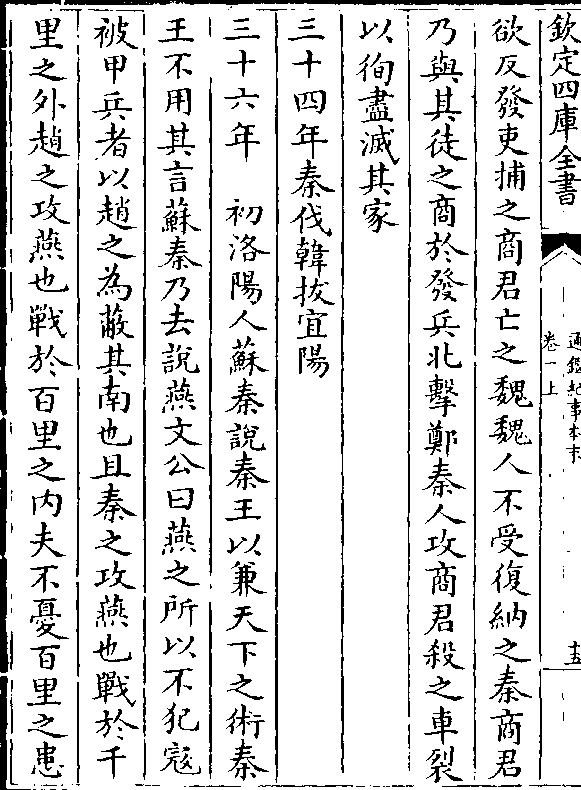 欽定四庫全書
通鑑紀事本末
卷一上
十五
欲反發吏捕之商君亡之魏魏人不受復納之秦商君
乃與其徒之商於發兵北擊鄭秦人攻商君殺之車裂
以徇盡滅其家
三十四年秦伐韓拔宜陽
三十六年 初洛陽人蘇秦說秦王以兼天下之術秦
王不用其言蘇秦乃去說燕文公曰燕之所以不犯寇
被甲兵者以趙之為蔽其南也且秦之攻燕也戰於千
里之外趙之攻燕也戰於百里之内夫不憂百里之患